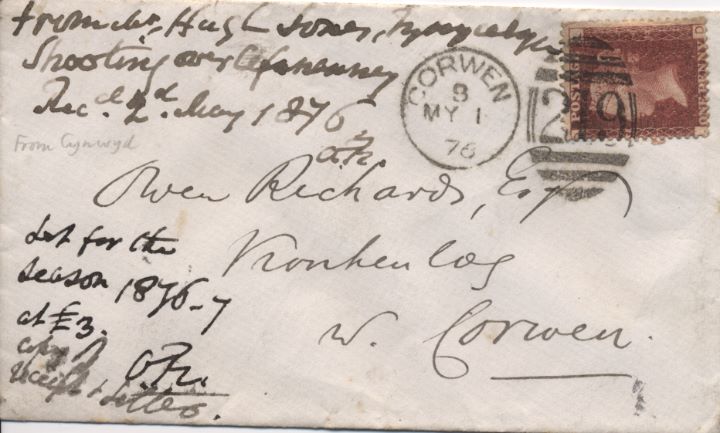 From Mr Hugh Jones,
Shooting over
Rec.d 2.d May 1876
O.R.
From Cynwyd
CORWEN
8
MY 1
76
219
Owen Richards, Esq
Vronheulog
nr. Corwen.
Let for the
season 1876-7
at £3.
copy of
O.R.
receipt & letter.